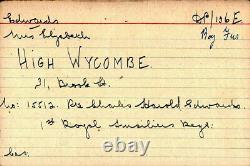 Edwards
Mrs Elizabeth
HIGH WYCOMBE.
21, Brook St.
No: 15512. Pte Charles Harold Edwards.
1st Royal Fusiliers Regt.